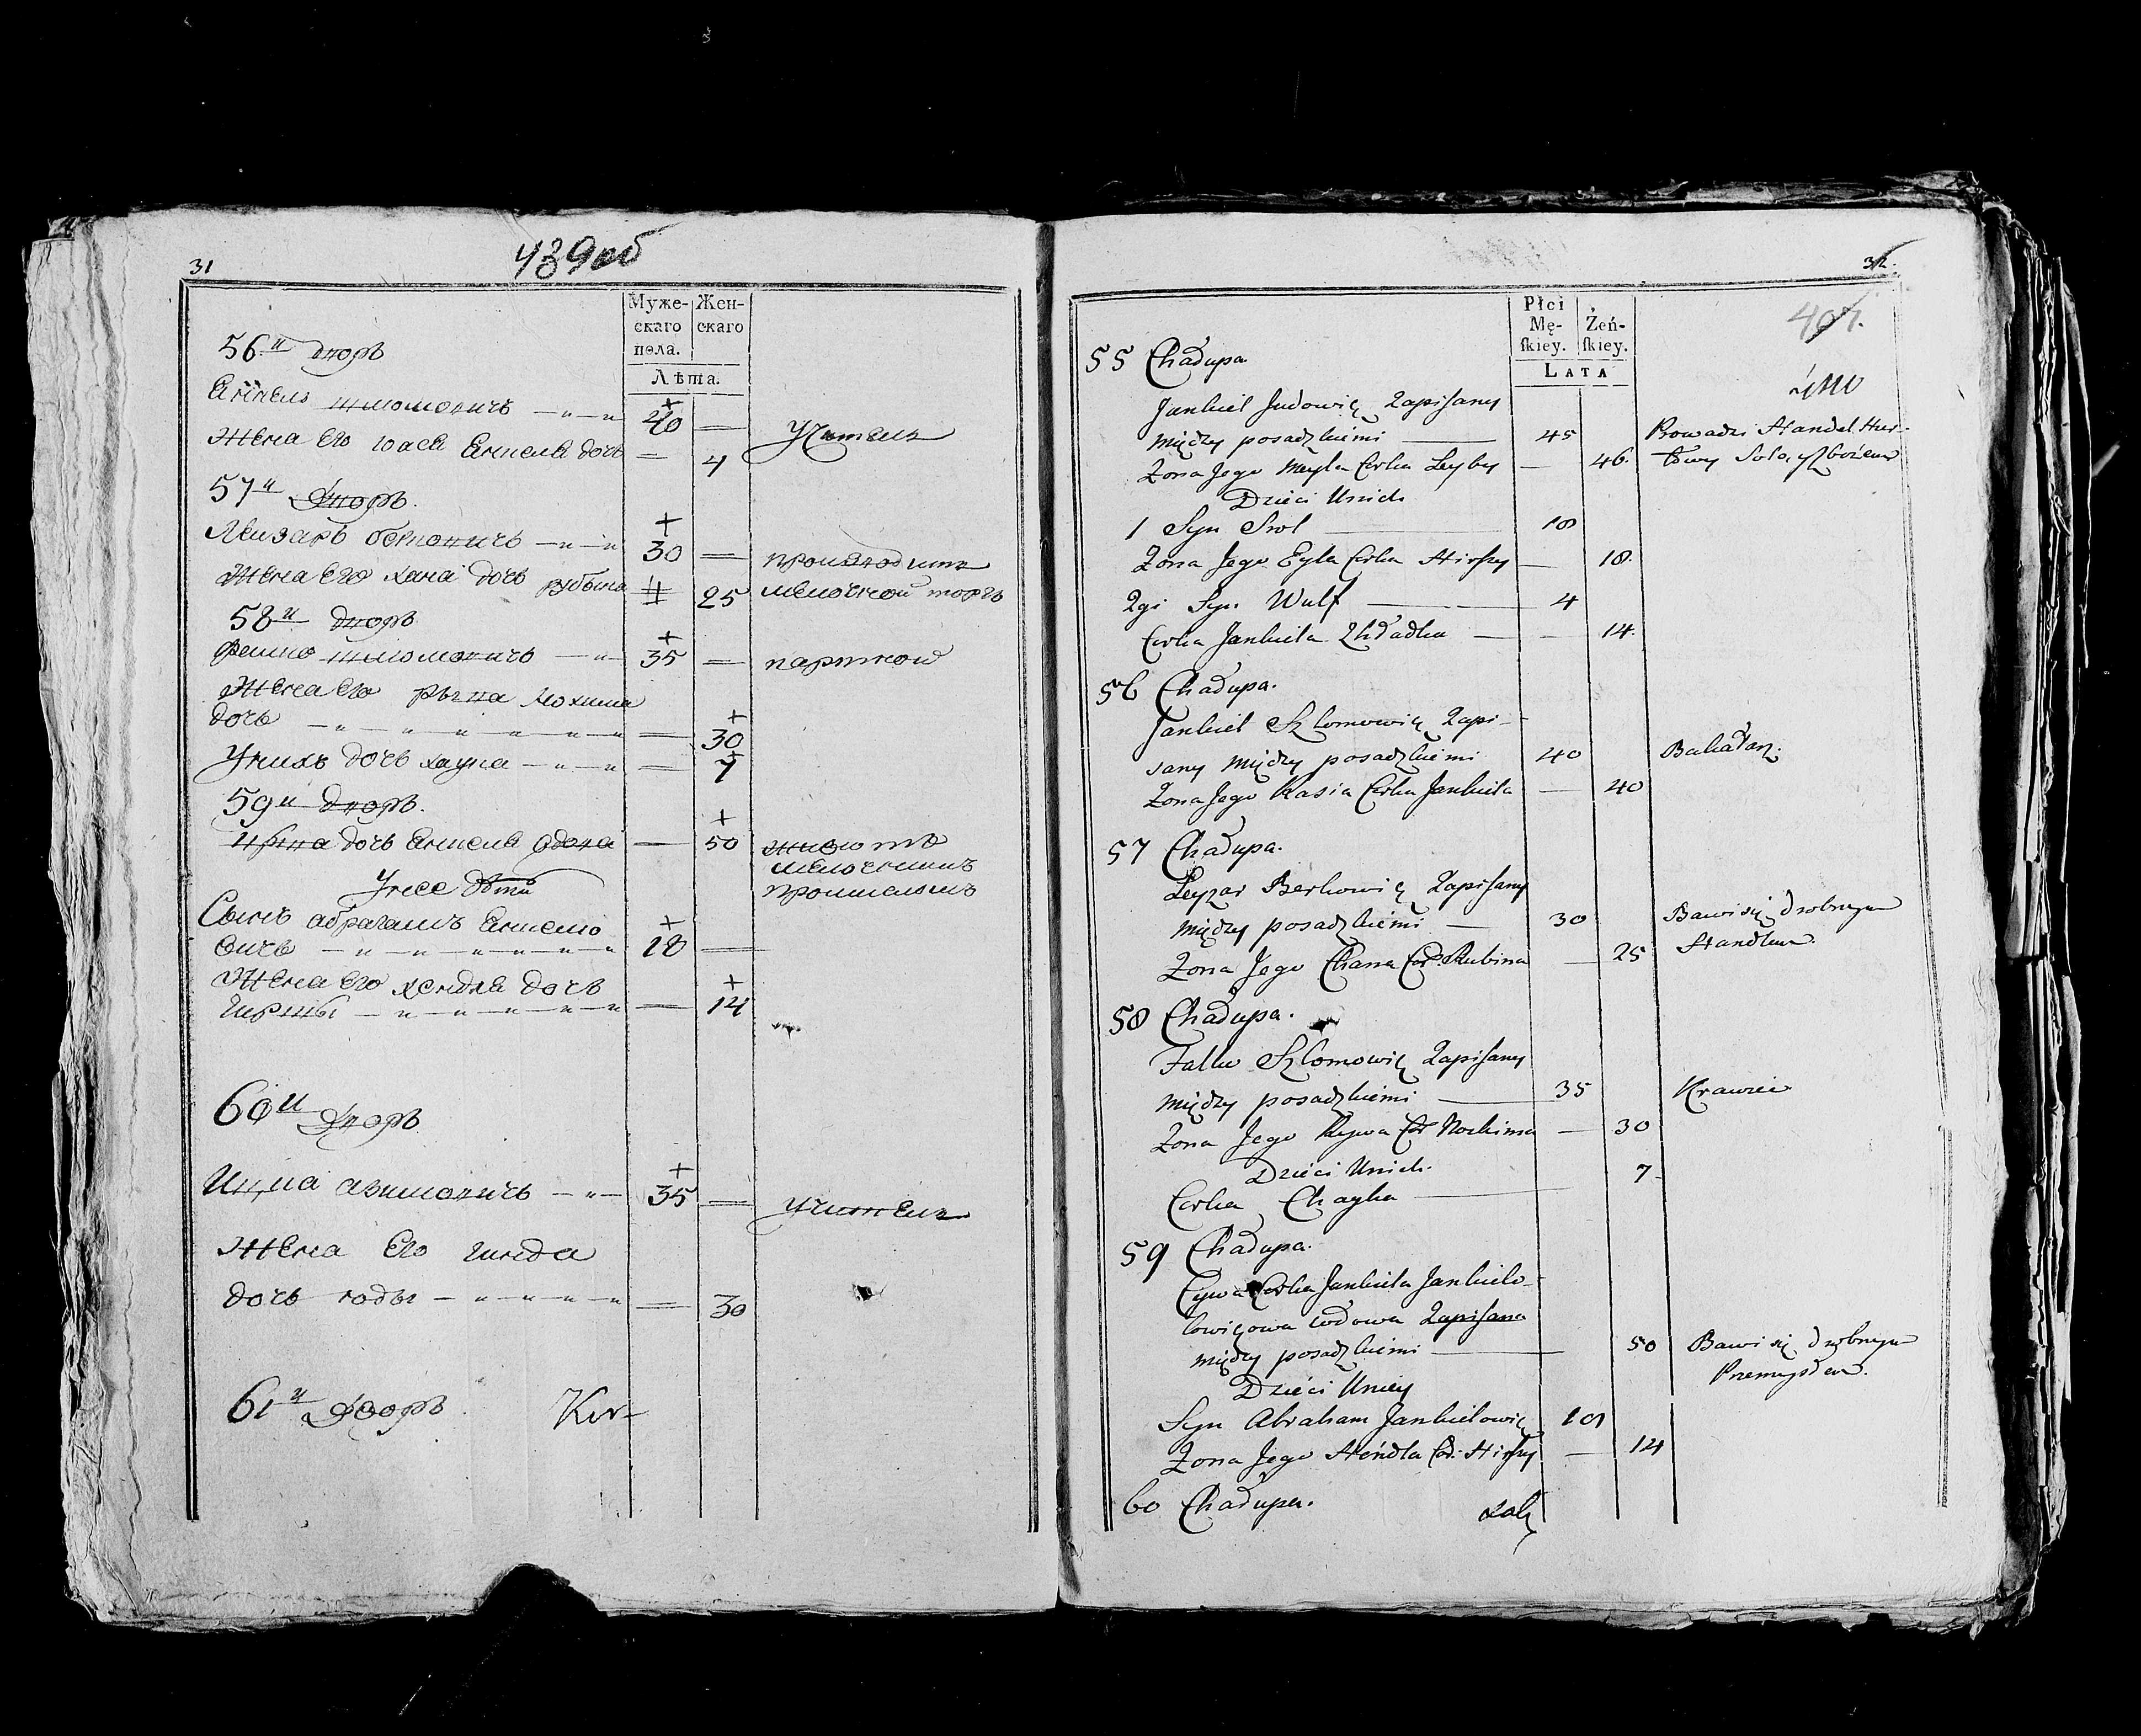 31
439об
Муже-
скаго
пола.
Жен-
скаго
Лѣта.
56й дворъ
Янкель шломовичъ
40
Учитель
Жена Его Кася Янкеля дочь
4
57й Дворъ.
Лейзаръ берковичъ
30
производитъ
Жена Его хана дочь рубина
25
мелочной торгъ
58й дворъ
Фалко шломовичъ
35
портной
Жена Его рывка Нохима
дочь
30
У них дочь хайка
7
59й дворъ.
Цывка дочь Янкеля вдова
50
мелочнымъ
промысломъ
У нее дѣти
Сынъ абрагамъ Янкело
вичъ
18
Жена Его хендля дочь
гиршы
14
60й Дворъ
Ицка
35
Учитель
Жена Его гинда
дочь
30
61й Дворъ.
32.
407.
Płci
Mę-
ſkiey.
Żeń-
ſkiey.
LATA
55 Chałupa
Jankiel Judowicz Zapisany
między posadzkiemi
45
Prowadzi Handel Hur-
Zona Jego Meyla Corka Leyby
46.
towy Solą, y Zbożem
Dzieci Unich
1 Syn Srol
18
Zona Jego Eyla Corka Hirszy
18.
2gi Syn Wulf
4
Corka Jankiela
14.
56 Chałupa.
Jankiel Szlomowicz Zapi-
sany między posadzkiemi
40
Bakałarz.
Zona Jego Kasia Corka Jankiela
40
57 Chałupa.
Leyzar Berkowicz Zapisany
między posadzkiemi
30
Bawi się drobnym
Zona Jego Chana Cor. Rubina
25
Handlem.
58 Chałupa.
Falko Szlomowicz Zapisany
między posadzkiemi
35
Krawiec
Zona Jego Rywa Cor Nochima
30
Dzieci Unich.
Corka Chayka
7
59 Chałupa.
Cywa Corka Jankiela Jankielo-
lowiczowa wdowa Zapisana
między posadzkiemi
50
Bawi się drobnym
Przemysłem.
Dzieci Uniey
Syn Abraham Jankielowicz
18
Zona Jego Hendla Cor. Hirszy
14
60 Chałupa.